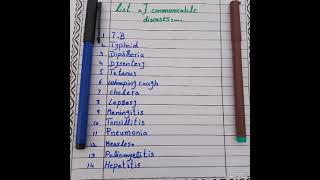 List of communicable
diseases:—
1 T.B
2 Typhoid
3 Diphtheria
4 Dysentery
5 Tetanus
6 Whooping cough
7 cholera
8 Leprosy
9 Meningitis
10 Tonsillitis
11 Pneumonia
12 Measles
13 Poliomyelitis
14 Hepatitis